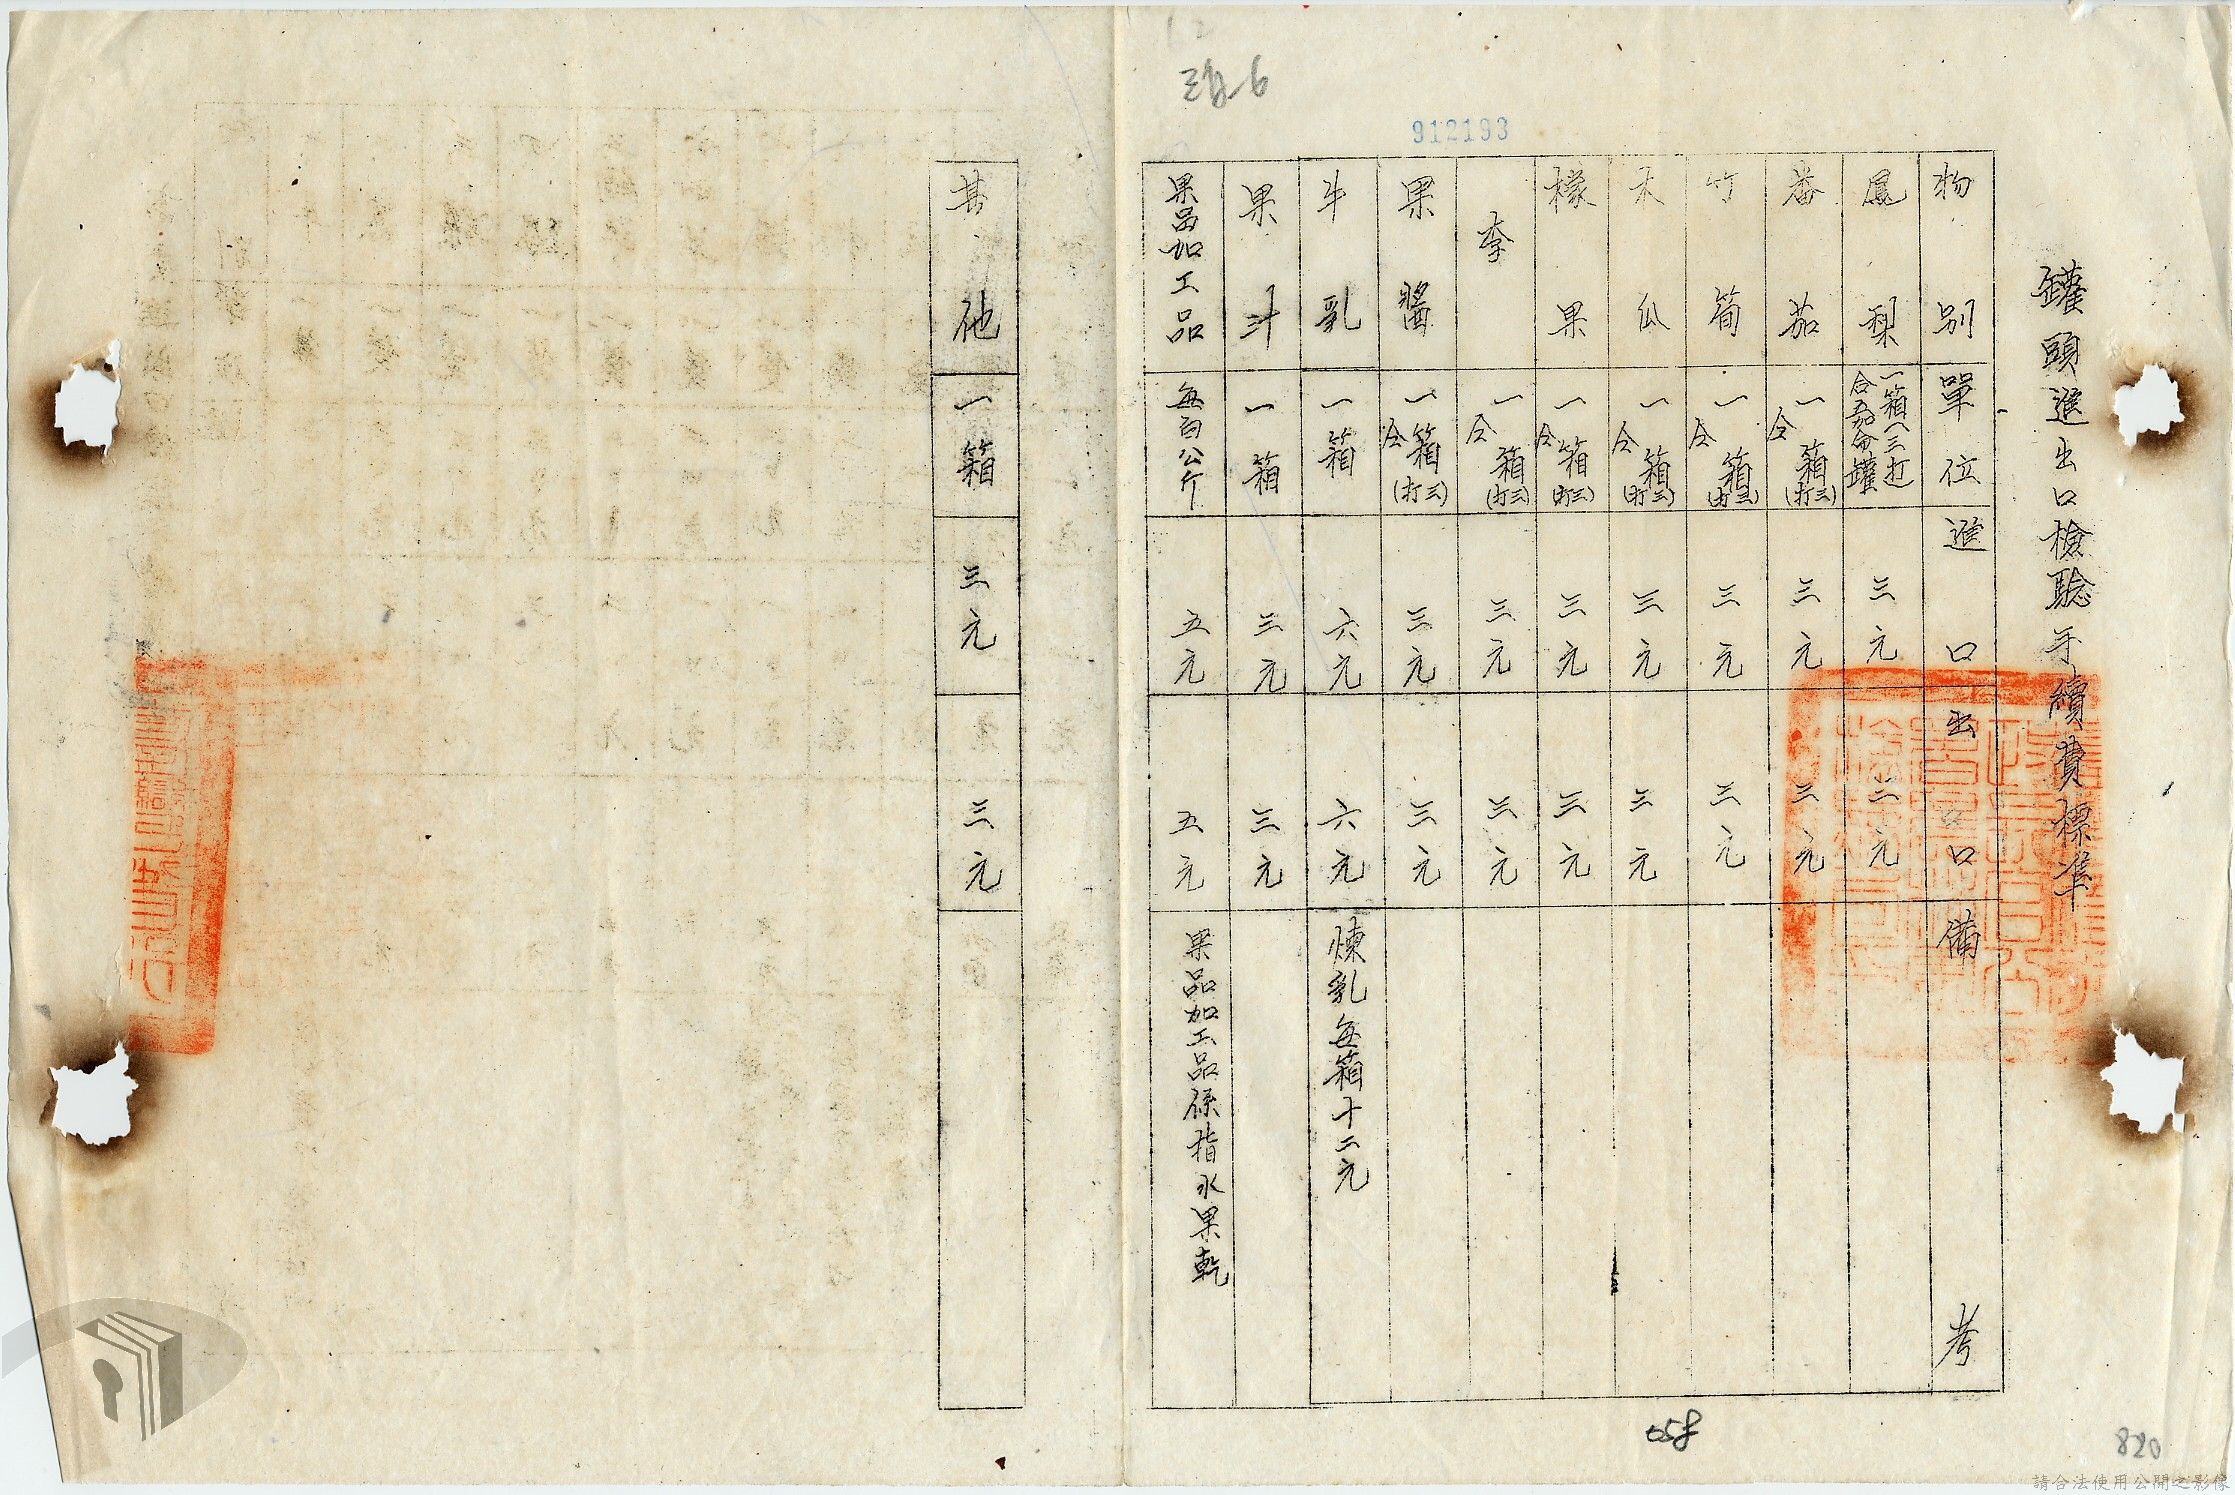 罐頭進出口檢驗手續費標準
物別 單位 進口 出口 備考
鳳梨 一箱(三打 合加侖罐 三元 三元
番茄 一箱(三打) 仝 三元 三元
竹筍 一箱(三打) 仝 三元 三元
木瓜 一箱(三打) 仝 三元 三元
檬果 一箱(三打) 仝 三元 三元
李 一箱(三打) 仝 三元 三元
果醬 一箱(三打) 仝 三元 三元
牛乳 一箱 六元 六元 煉乳每箱十二元
果汁 一箱 三元 三元
果品加工品 每百公斤 五元 五元 果品加工品係指水果乾
其他 一箱 三元 三元
912193
058
820
請合法使用公開之影像